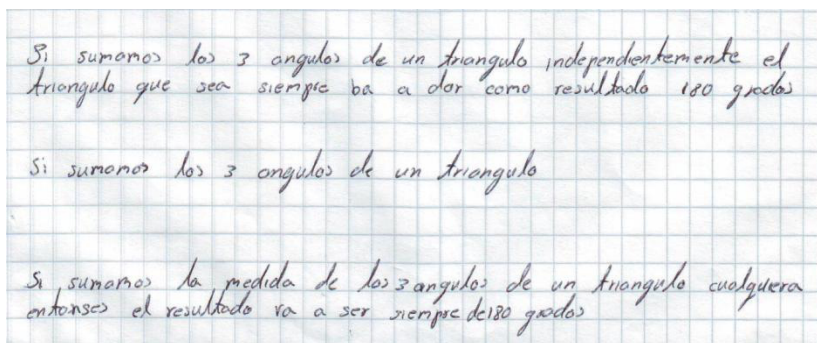 Si sumamos los 3 angulos de un triangulo independientemente el
triangulo que sea siempre ba a dar como resultado 180 grados
Si sumamos los 3 angulos de un triangulo
Si sumamos la medida de los 3 angulos de un triangulo cualquera
entonses el resultado va a ser siempre de 180 grados